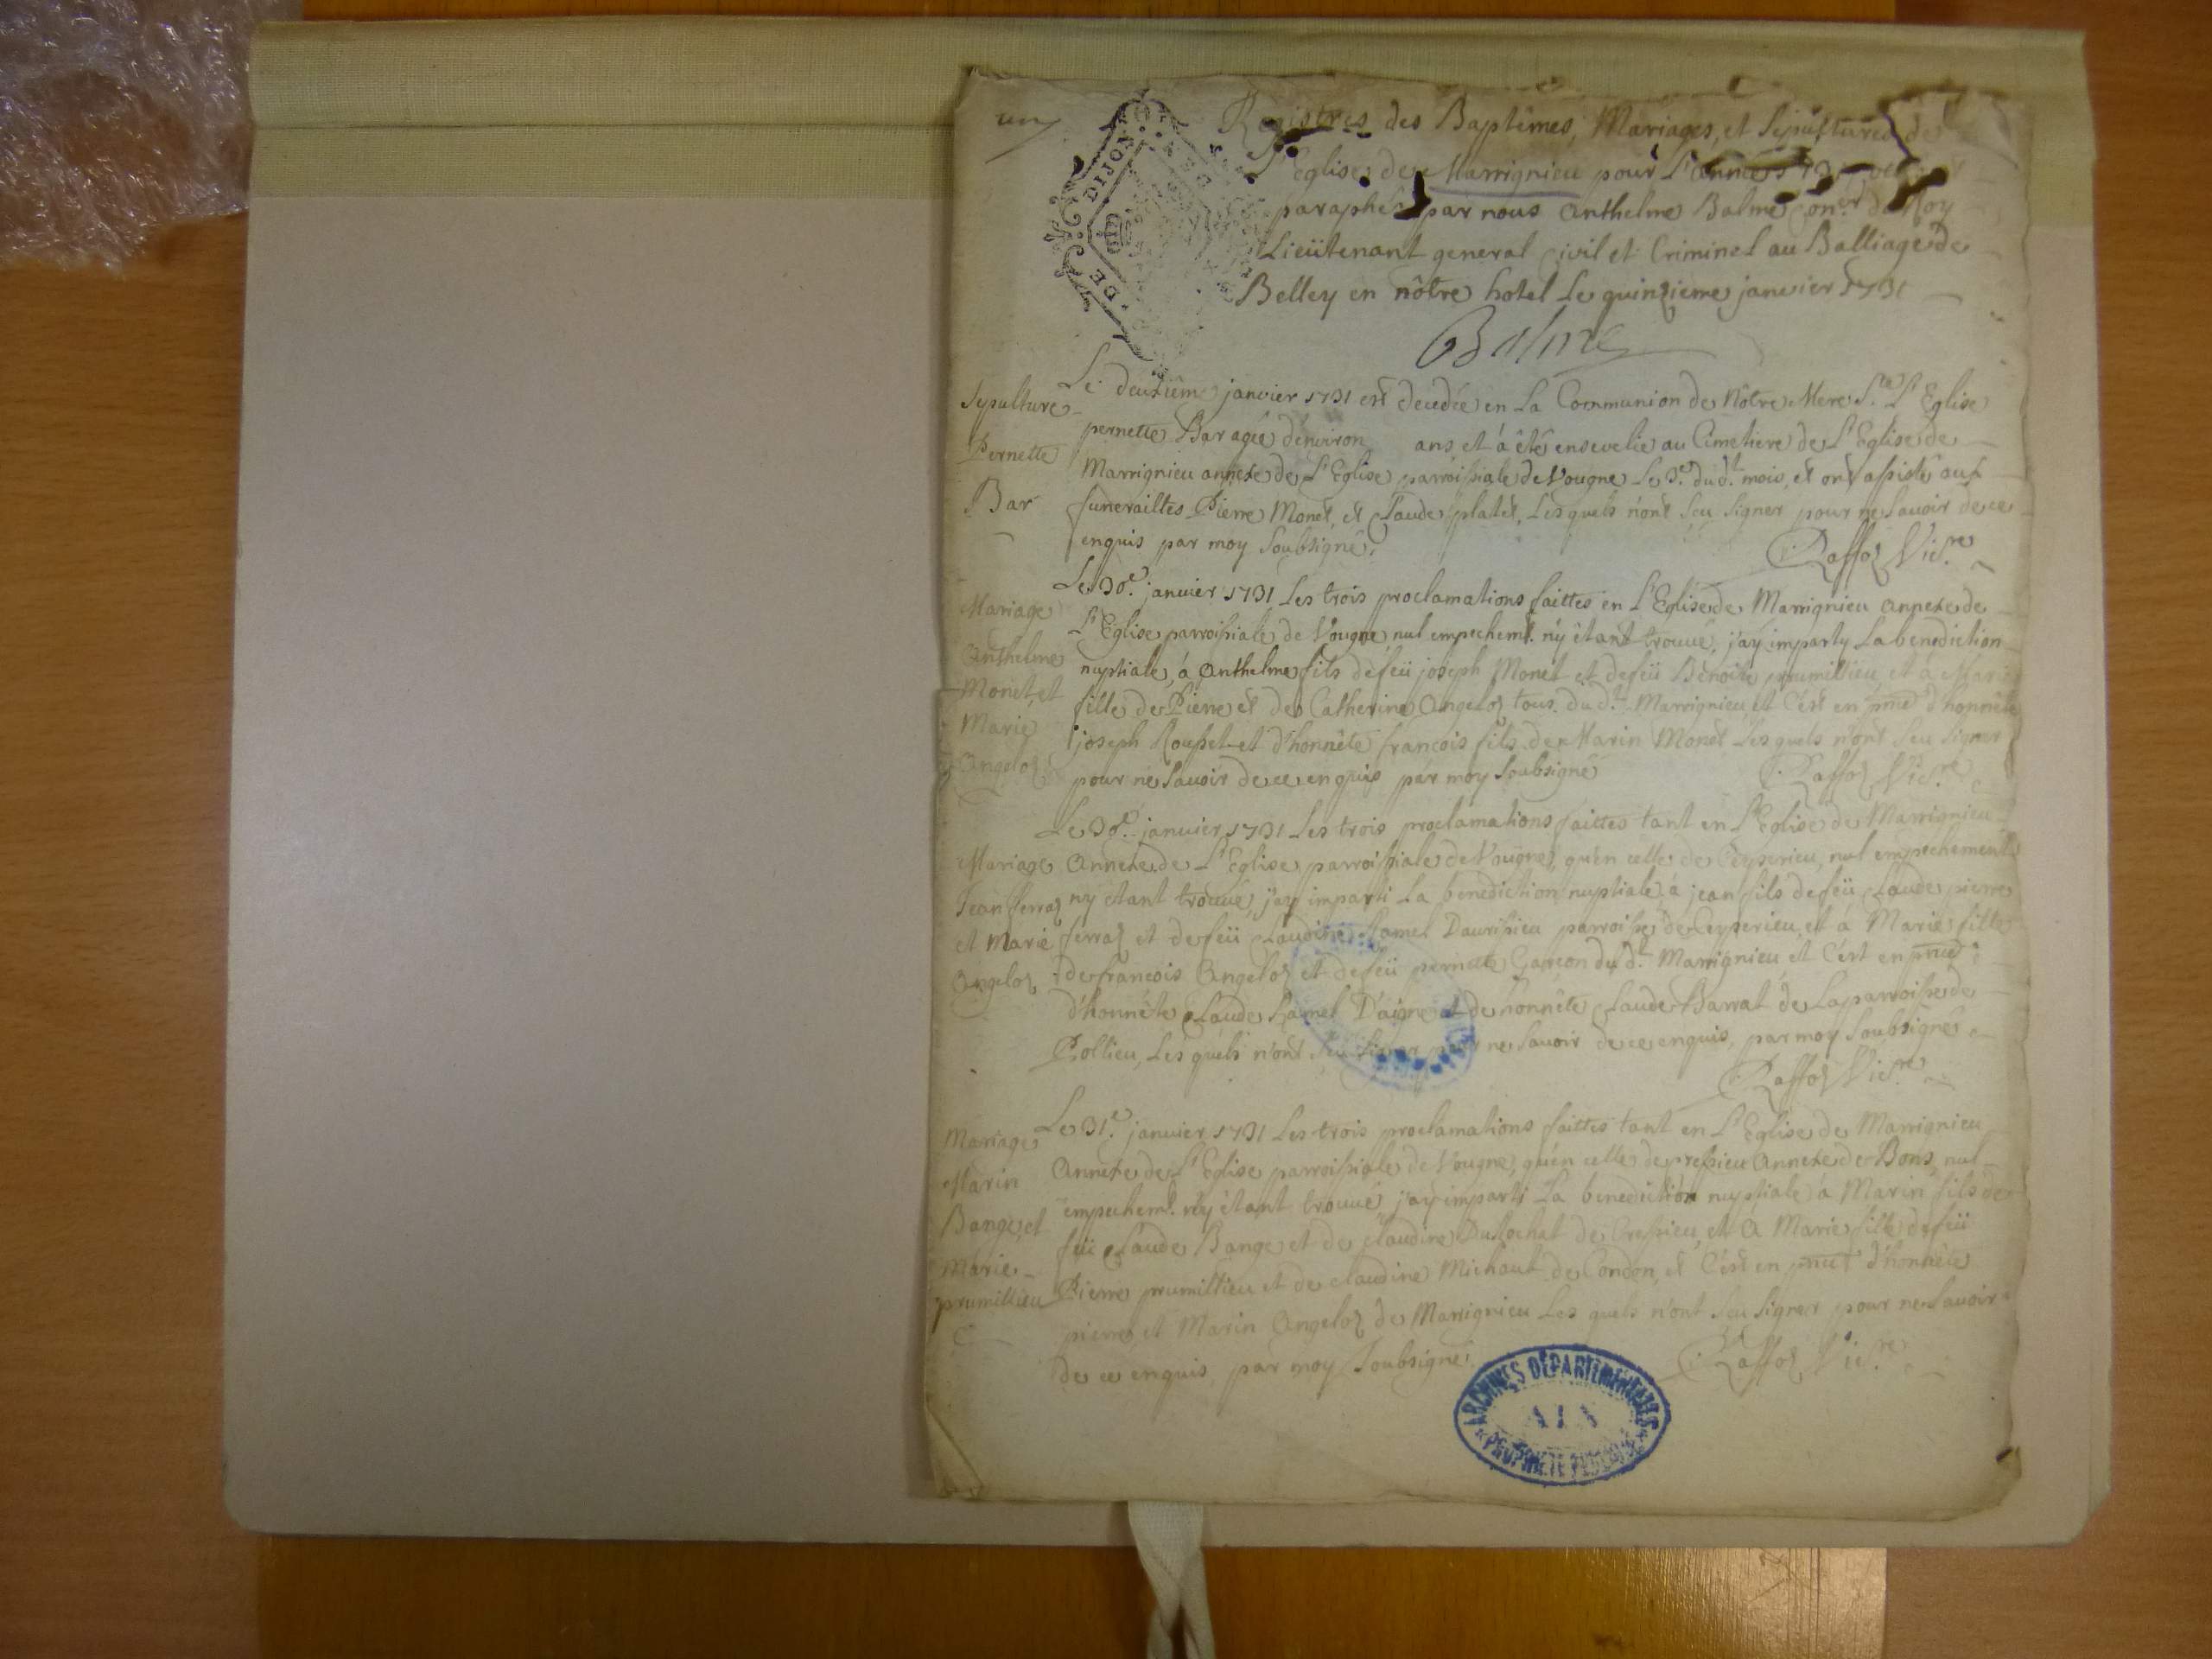 un
DE DIJON
Registres des Baptêmes, Mariages, et Sepultures de
L'eglise de Marrignieu pour L'année 1731
paraphés par nous Anthelme Balme Con.er du Roy
Lieütenant general Civil et Criminel au Balliage de
Belley en nôtre hotel Le quinzieme janvier 1731
Balme
Sepulture
Pernette
Bar
Le deuxiême janvier 1731 est decedée en La Communion de Nôtre Mere S.te L'Eglise
pernette Bar agée denviron ans, et á été ensevelie au Cimetiere de L'Eglise de
Marrignieu annexe de L'Eglise parroissiale de Vougne Le 3.e dud.t mois, et ont assisté aux
funerailles Pierre Monet, et Claude platet, Lesquels n'ont seu signer pour ne savoir de ce
enquis par moy soubsigné.
Raffoz Vic.re
Mariage
Anthelme
Monet, et
Marie
Angeloz
Le 30.e janvier 1731 Les trois proclamations faittes en L'Eglise de Marrignieu annexe de
L'Eglise parroissiale de Vougne nul empechemt. n'y êtant trouvé, j'ay imparty La benediction
nuptiale, á Anthelme fils de feü joseph Monet et de feü Benoite prumillieu, et á Marie
fille de Pierre et de Catherine Angeloz tous dud.t Marrignieu, et C'est en pnce d'honnête
joseph Rousset et d'honnête françois fils de Marin Monet Lesquels n'ont seu signer
pour ne savoir de ce enquis par moy soubsigné
Raffoz Vic.re
Mariage
Jean ferraz
et Marie
Angeloz
Le 30.e janvier 1731 Les trois proclamations faittes tant en L'Eglise de Marrignieu
Annexe de L'Eglise parroissiale de Vougne, qu'en celle de Ceyserieu, nul empechement
ny êtant trouvé, j'ay imparti La benediction nuptiale á jean fils de feü Claude pierre
ferraz et de feü Claudine Hamel Daurisieu parroisse de Ceyserieu, et á Marie fille
de françois Angeloz et de feü pernette Garcon dud.t Marrignieu et C'est en pnce
d'honnête Claude Hamel D'aigne et de honnête Claude Barrat de La parroisse de
Pollieu, Lesquels n'ont seu signer pour ne savoir de ce enquis, par moy soubsigné
Raffoz Vic.re
Mariage
Marin
Bange, et
Marie
prumillieu
Le 31.e janvier 1731 Les trois proclamations faittes tant en L'Eglise de Marrignieu
Annexe de L'Eglise parroissiale de Vougne, qu'en celle de pressieu Annexe de Bons, nul
empechemt. n'y êtant trouvé, j'ay imparti La benediction nuptiale á Marin fils de
feü Claude Bange et de Claudine Dullochat de Cressieu, et á Marie fille de feü
Pierre prumillieu et de claudine Michaut de Condon, et C'est en pnce d'honnête
pierre, et Marin Angeloz de Marrignieu Les quels n'ont seu signer pour ne savoir
de ce enquis, par moy soubsigné.
Raffoz Vic.re
ARCHIVES DÉPARTEMENTALES
AIN
PROPRIÉTÉ PUBLIQUE